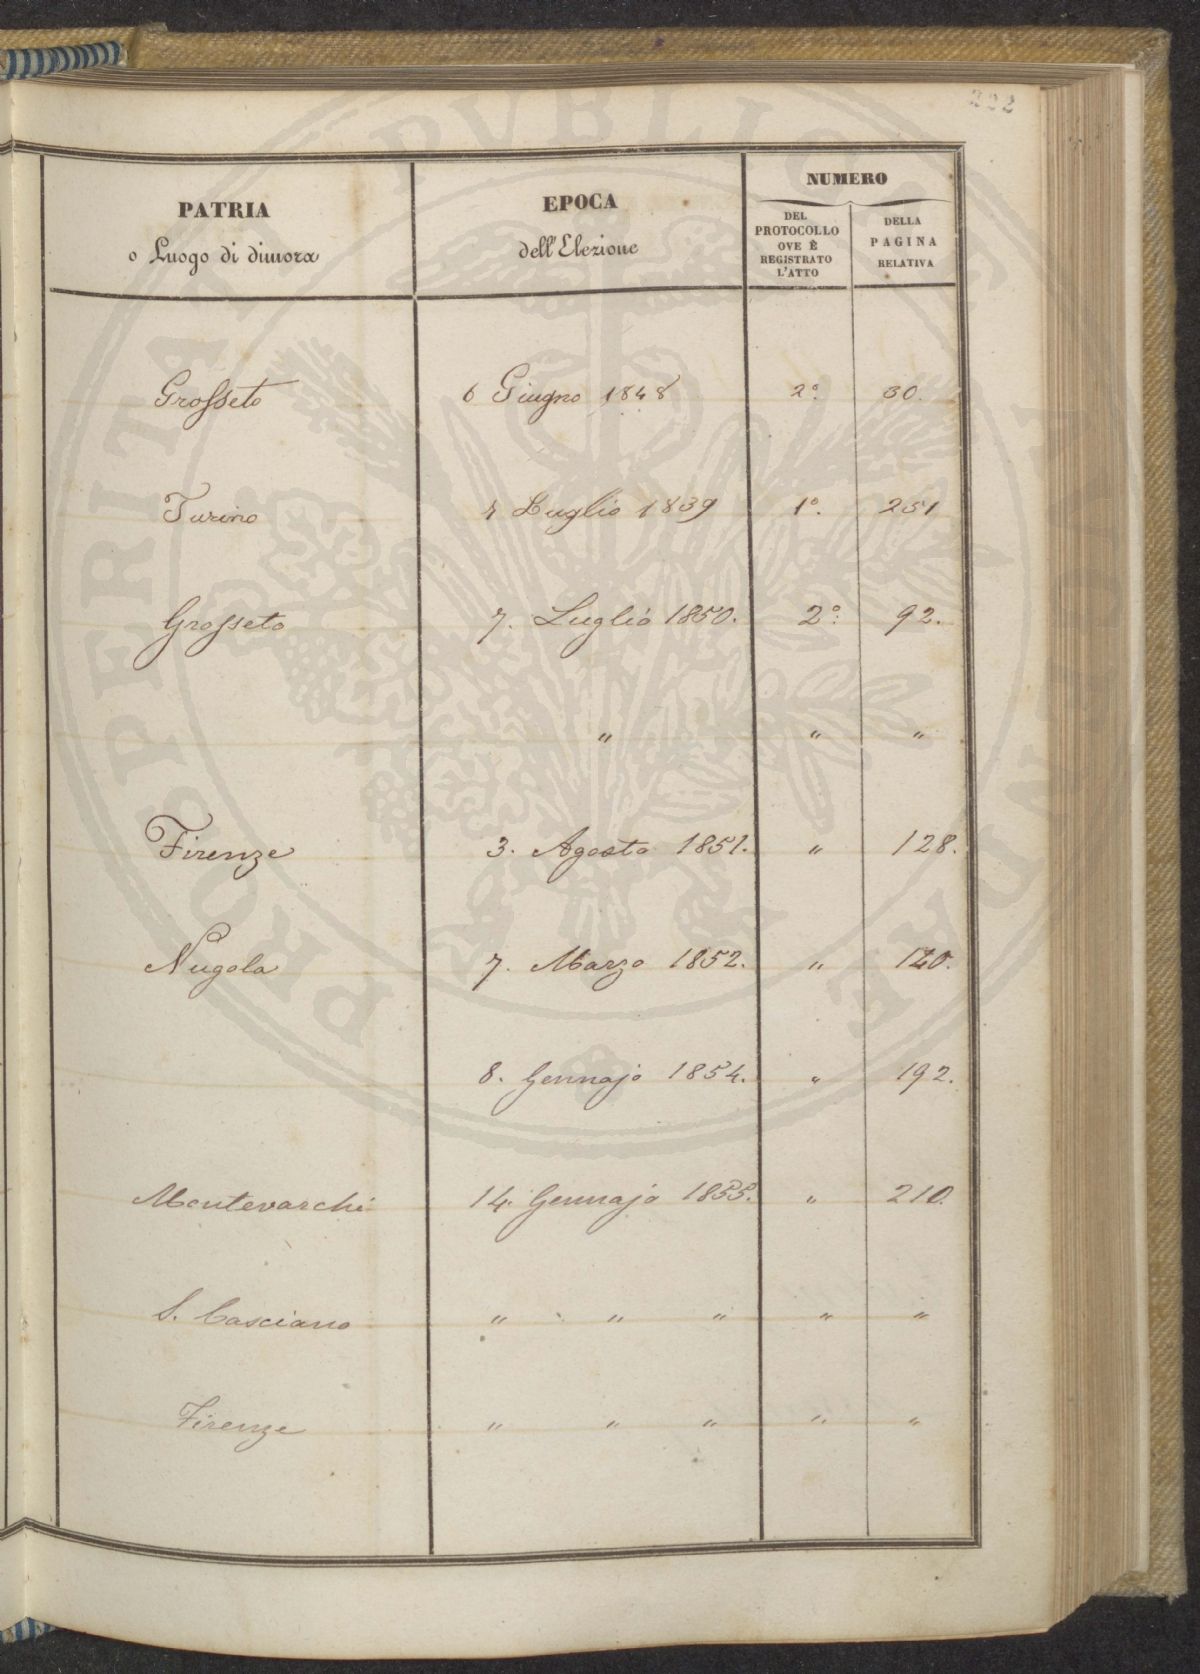 222
PATRIA
o Luogo di dimora
EPOCA
dell'Elezione
NUMERO
DEL
PROTOCOLLO
OVE È
REGISTRATO
L'ATTO
DELLA
PAGINA
RELATIVA
Grosseto 6 Giugno 1848 2º 30.
Turino Luglio 1839 1º. 251
Grosseto 7. Luglio 1850. 2º: 92.
" " "
Firenze 3. Agosto 1851. " 128.
Nugola 7. Marzo 1852. " 140.
8. Gennajo 1854. " 192.
Montevarchi 14. Gennajo 1855. " 210.
S. Casciano " " " " "
Firenze " " " " "
PROSPERITATI PUBLICAE